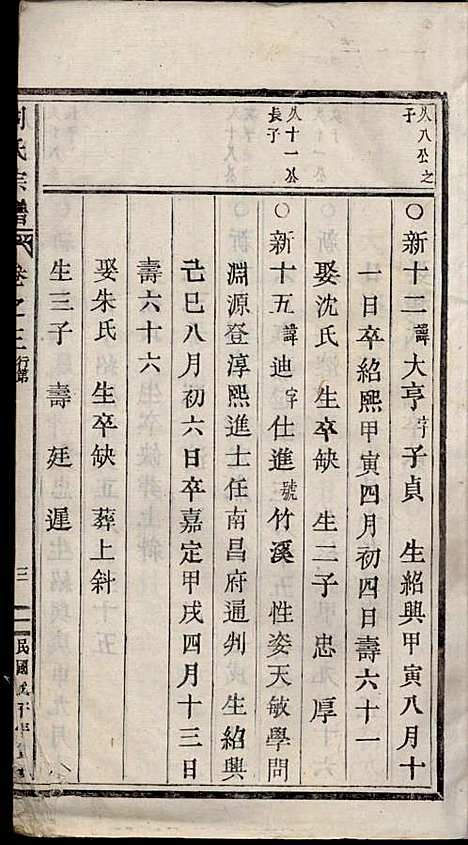 久八公之
子
○新十二諱大亨字子貞　生紹興甲寅八月十
一日卒紹熙甲寅四月初四日壽六十一
娶沈氏　生卒缺　生二子　忠　厚
久十一公
長子
○新十五諱迪字仕進號竹溪　性姿天敏學問
淵源登淳熙進士任南昌府通判　生紹興
己巳八月初六日卒嘉定甲戌四月十三日
壽六十六
娶朱氏　生卒缺　葬上斜
生三子　壽　廷　遲
氏宗譜　卷之三　行第　三　民國